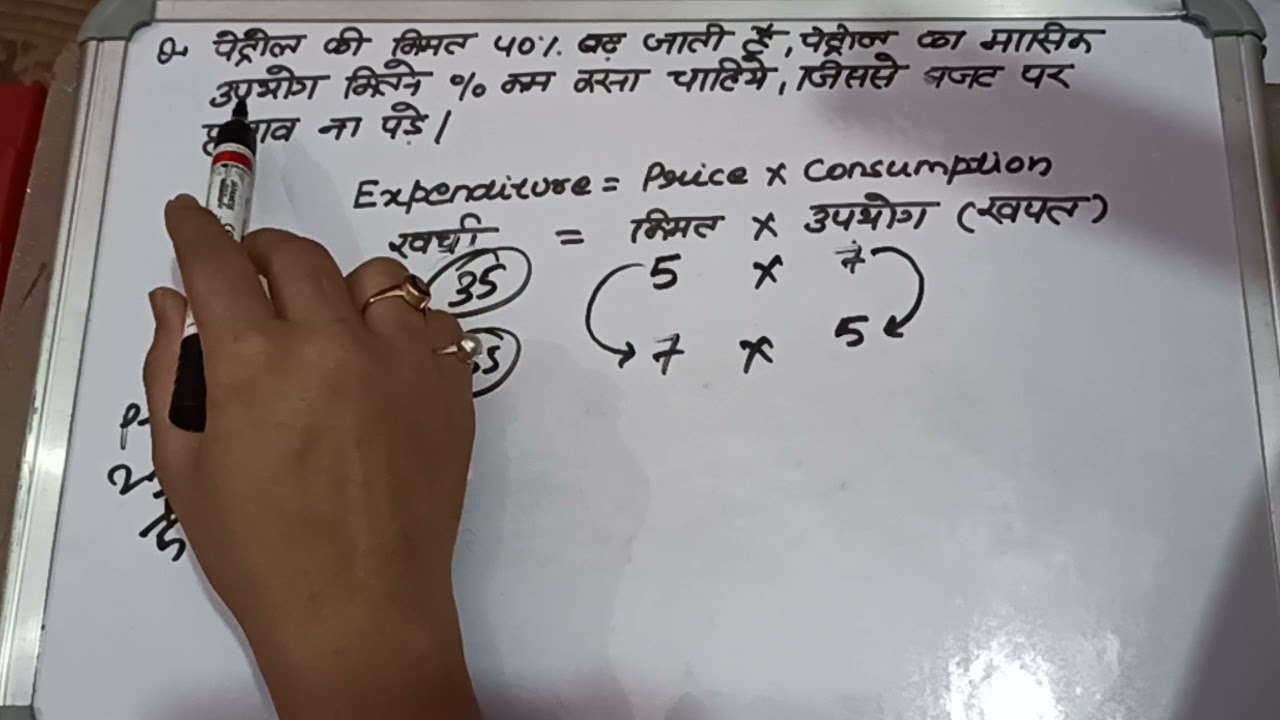 Q- पेट्रोल की किमत 40% बढ़ जाती है, पेट्रोल का मासिक
उपभोग कितने % कम करना चाहिये, जिससे बजट पर
ना पड़े।
Expenditure = Price × Consumption
खर्चा = किमत × उपभोग (खपत)
35 5 × 7
7 × 5